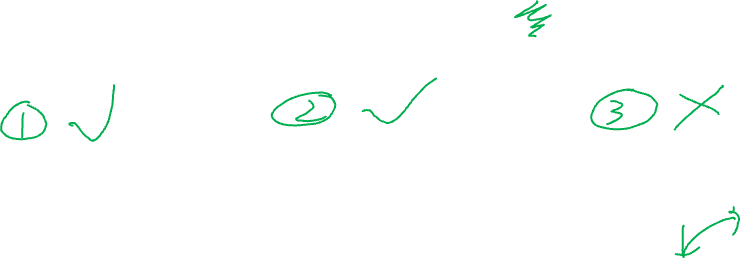 ① ✓ ② ✓ ③ ✗